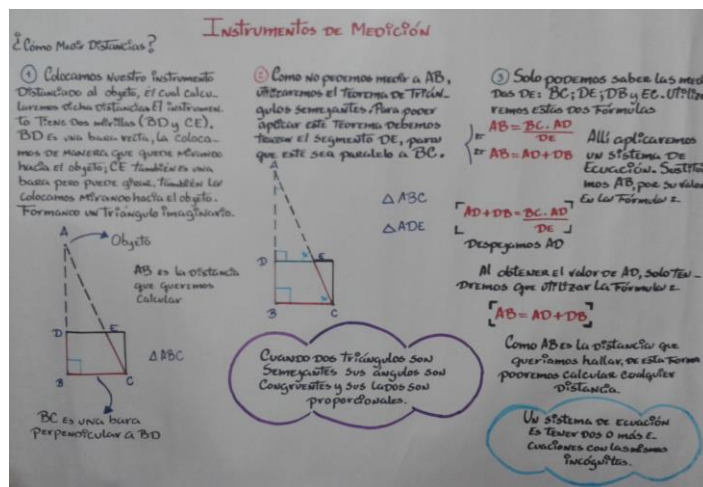 Instrumentos de Medición
¿Cómo Medir Distancias?
① Colocamos nuestro instrumento
Distanciado al objeto, él cual calcu-
laremos dicha distancia. El instrumen-
to Tiene Dos mirillas (BD y CE).
BD Es una bara recta, la coloca-
mos de manera que quede mirando
hacia el objeto; CE también es una
bara pero puede girar, también la
colocamos mirando hacia el objeto.
Formando un Triángulo imaginario.
A
Objeto
AB es la distancia
que queremos
calcular
D
E
B
C
△ ABC
BC es una bara
perpendicular a BD
② Como no podemos medir a AB,
utilizaremos el teorema de Trián-
gulos semejantes. Para poder
aplicar este Teorema debemos
trazar el segmento DE, para
que este sea paralelo a BC.
A
△ ABC
△ ADE
D
E
B
C
Cuando dos triángulos son
Semejantes sus ángulos son
Congruentes y sus lados son
proporcionales.
③ Solo podemos saber las medi
das de: BC; DE; DB y EC. Utiliza
remos estas dos Formulas
AB = BC. AD
DE
AB = AD + DB
Allí aplicaremos
un sistema de
Ecuación. Sustitui
mos AB, por su valor
En la Fórmula 2.
AD + DB = BC. AD
DE
Despejamos AD
Al obtener el valor de AD, solo Ten-
dremos que utilizar la Fórmula 2
AB = AD + DB
Como AB es la distancia que
queriamos hallar, de esta Forma
podremos calcular cualquier
Distancia.
Un sistema de ecuación
Es tener dos o más E-
cuaciones con las mismas
incógnitas.